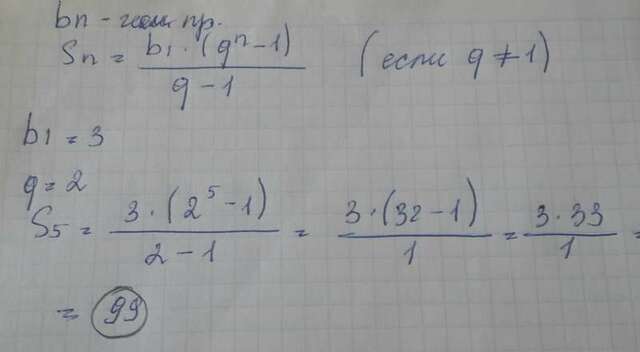 bn - геом пр.
Sn = b1 · (q^n - 1) / q - 1 (если q ≠ 1)
b1 = 3
q = 2
S5 = 3 · (2^5 - 1) / 2 - 1 = 3 · (32 - 1) / 1 = 3 · 33 / 1 =
= 99